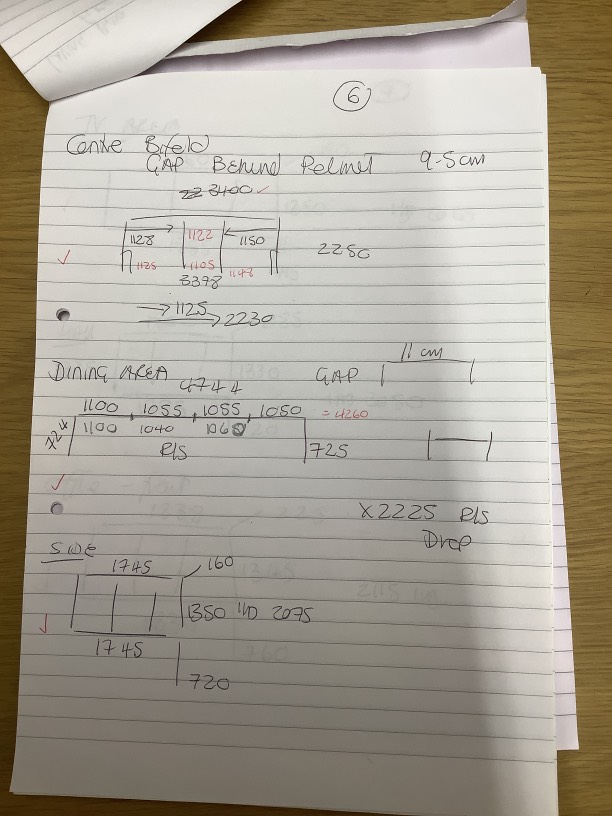 6
Centre Bifold
GAP Behind Pelmet 9-5cm
22 3400 ✓
1128 1122 1150 2250
✓ 1125 1105 1148
3398
1125
2230
11 cm
DINING AREA 4744 GAP
1100, 1055, 1055, 1050 = 4260
1100 1040 1060
R/S 725
✓
X2225 R/S
Drop
SIDE
1745 160
1350 2075
✓
1745
720